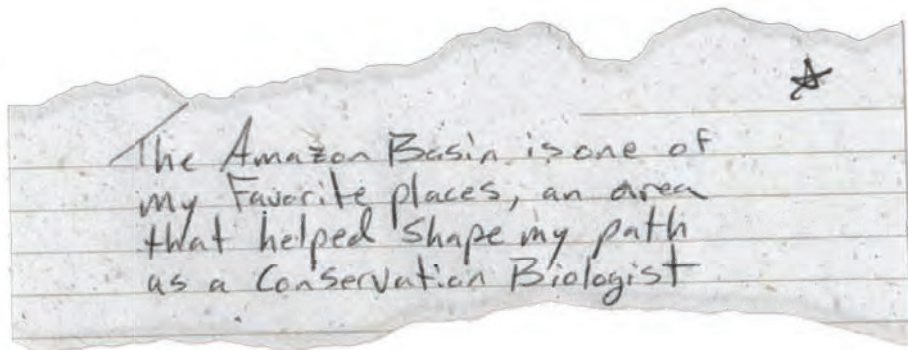 The Amazon Basin is one of
my Favorite places, an area
that helped shape my path
as a Conservation Biologist